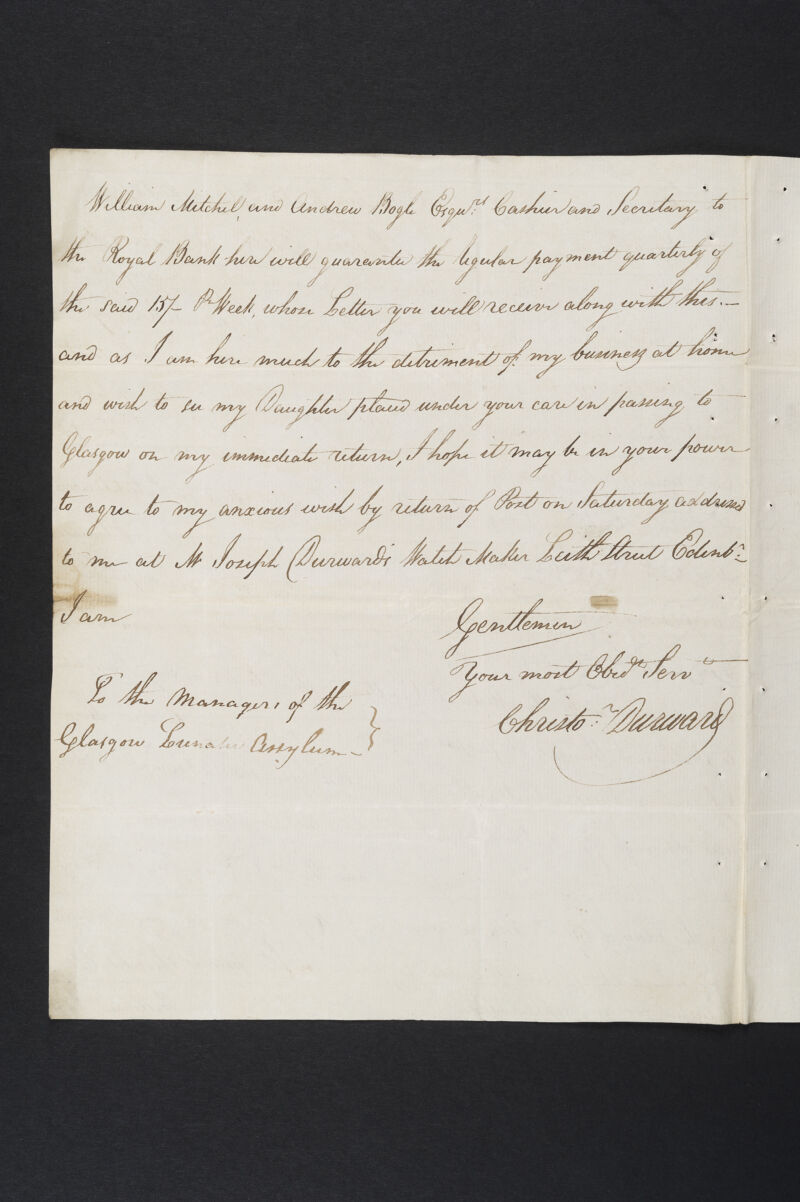 William Mitchel, and Andrew Bogle Esqu.rs Cashier and Secretary to
the Royal Bank here will guarantee the regular payment quarterly of
the said 15/- Pr Week, whose Letter you will receive along with this. —
and as I am here much to the detriment of my business at home
and wish to see my Daughter placed under your care in passing to
Glasgow on my immediate return, I hope it may be in your power
to agree to my anxious wish by return of Post on Saturday address'd
to me at Mr Joseph Durward's Watch Maker Leith Street Edinbr.
I am
Gentlemen
Your most Obedt Servt
Christor. Durward
To the Managers of the
Glasgow Lunatic Assylum —